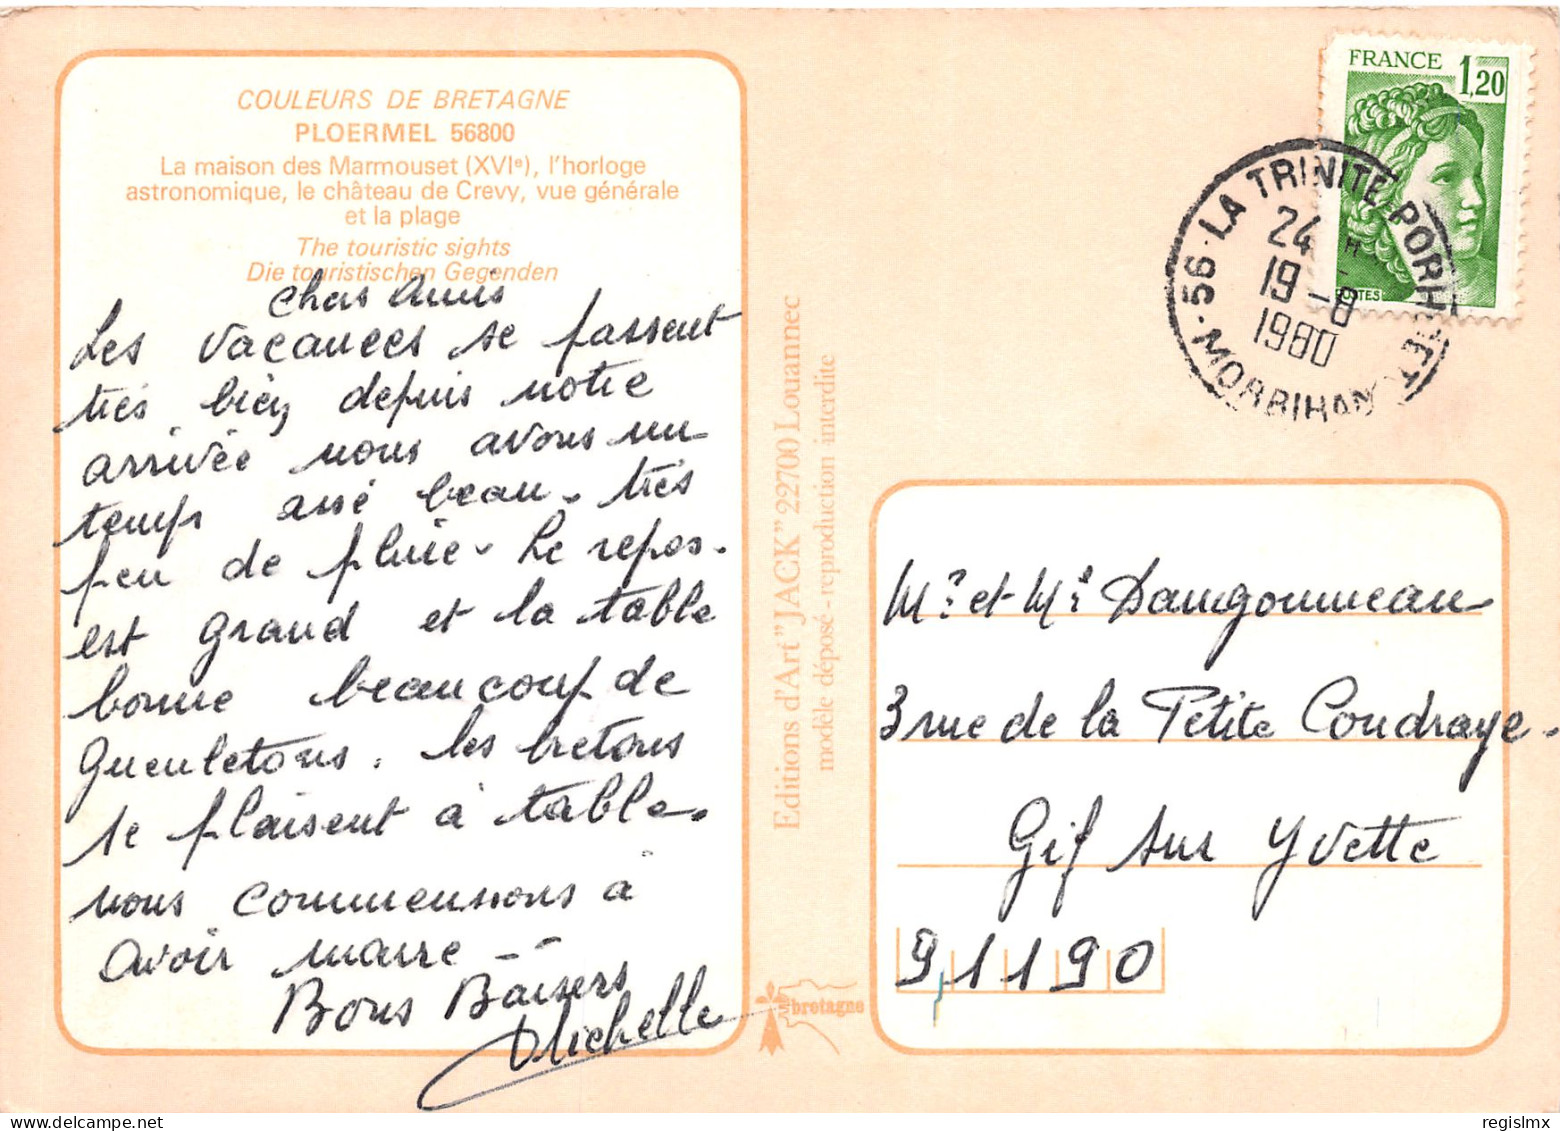 COULEURS DE BRETAGNE
PLOERMEL 56800
La maison des Marmouset (XVIe), l'horloge
astronomique, le château de Crevy, vue générale
et la plage
The touristic sights
Die touristischen Gegenden
Chers Amis
Les vacances se passent
très bien, depuis notre
arrivée nous avons un
temps assé beau. très
peu de pluie. Le repos.
est grand et la table
bonne beaucoup de
Gueuletons. les bretons
se plaisent à table.
nous commensons à
avoir marre --
Bons Baisers
Michelle
Editions d'Art "JACK" 22700 Louannec
modèle déposé - reproduction interdite
bretagne
FRANCE 1,20
POSTES
56 · LA TRINITE PORHOET
24 H
19 -8
1980
MORBIHAN
Mr et Me Daugonneau
3 rue de la Petite Coudraye.
Gif sur Yvette
91190
regislmx